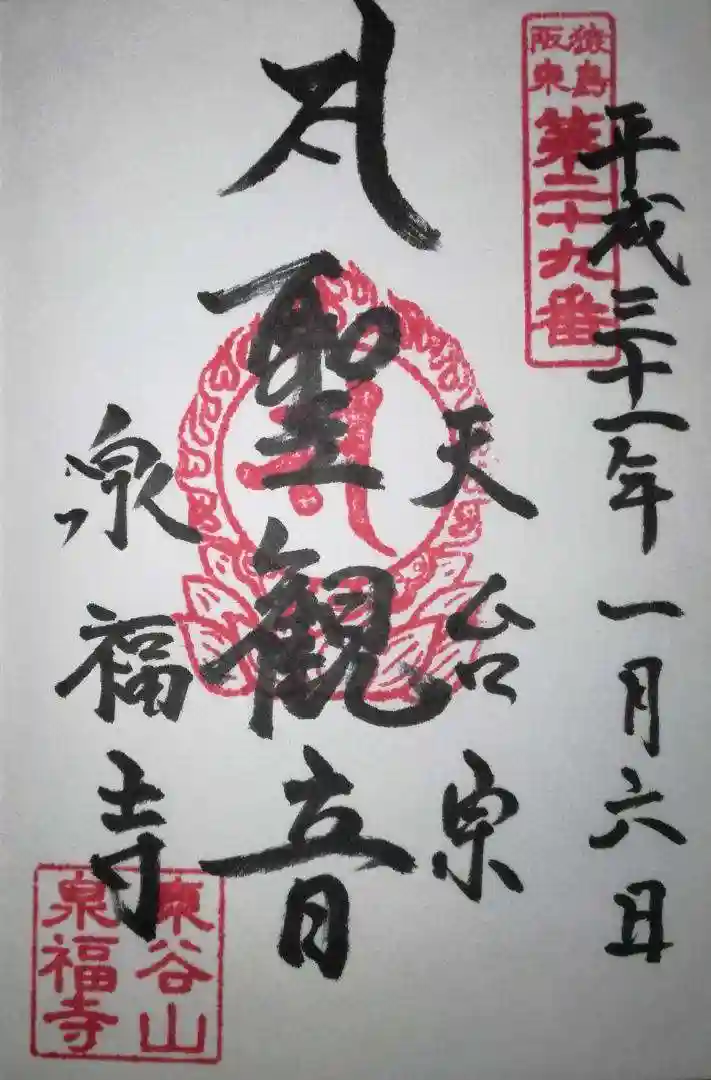 平成三十一年一月六日
猿島
阪東
第二十九番
天台宗
聖観音
泉福寺
東谷山
泉福寺